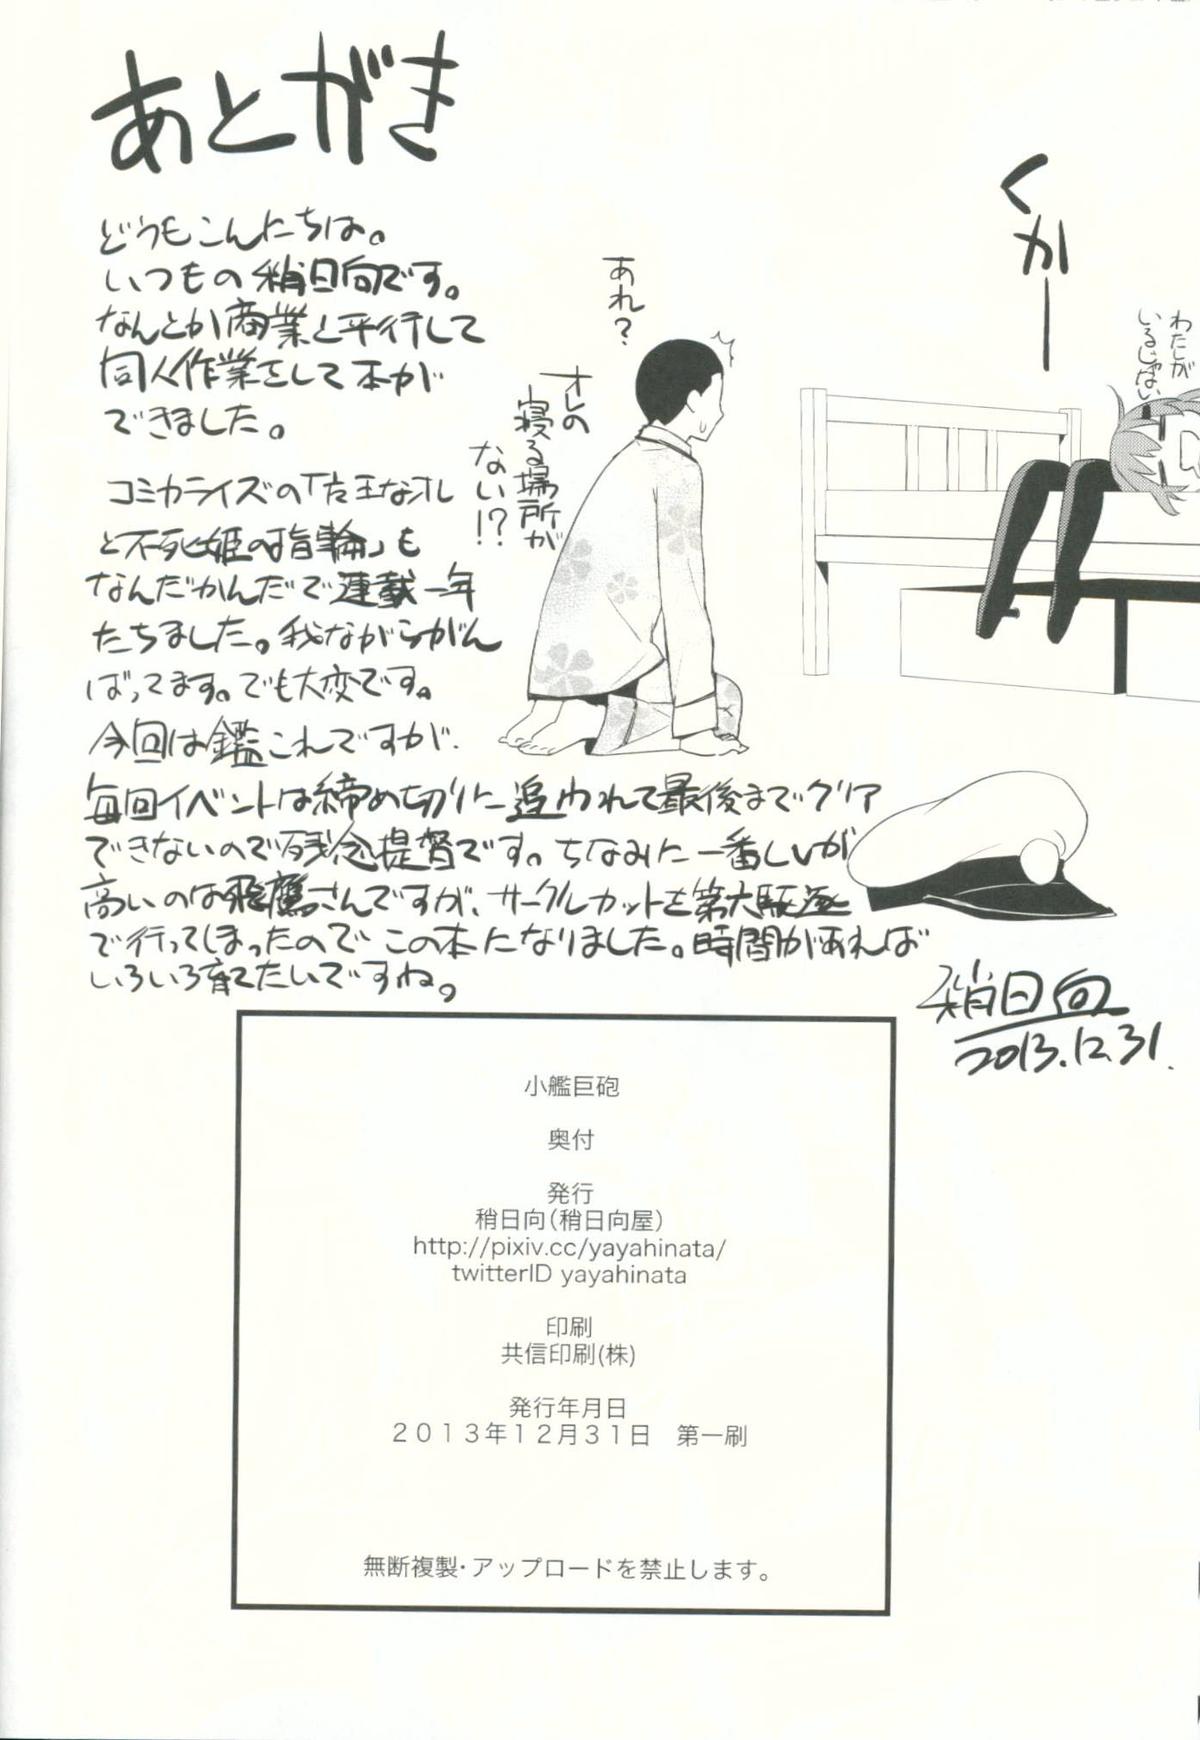 あとがき
どうもこんにちは。
いつもの稍日向です。
なんとか商業と平行して
同人作業をして本が
できました。
コミカライズの「右王なオレ
と不死姫の指輪」も
なんだかんだで連載一年
たちました。我ながらがん
ばってます。でも大変です。
今回は鑑これですが、
毎回イベントは締め切りに追われて最後までクリア
できないので残念提督です。ちなみに一番Lvが
高いのは飛鷹さんですが、サークルカットを第六駆逐
で行ってしまったのでこの本になりました。時間があれば
いろいろ育てたいですね。
くかー
わたしが
いるじゃない
あれ?
オレの
寝る場所が
ない!?
稍日向
2013.12.31.
小艦巨砲
奥付
発行
稍日向(稍日向屋)
http://pixiv.cc/yayahinata/
twitterID yayahinata
印刷
共信印刷(株)
発行年月日
2013年12月31日 第一刷
無断複製・アップロードを禁止します。